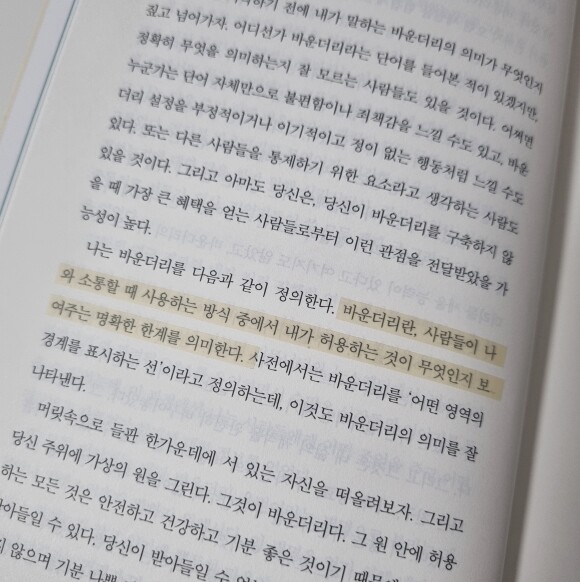 전에 내가 말하는 바운더리의 의미가 무엇인지
짚고 넘어가자. 어디선가 바운더리라는 단어를 들어본 적이 있겠지만,
정확히 무엇을 의미하는지 잘 모르는 사람들도 있을 것이다. 어쩌면
누군가는 단어 자체만으로 불편함이나 죄책감을 느낄 수도 있고, 바운
더리 설정을 부정적이거나 이기적이고 정이 없는 행동처럼 느낄 수도
있다. 또는 다른 사람들을 통제하기 위한 요소라고 생각하는 사람도
있을 것이다. 그리고 아마도 당신은, 당신이 바운더리를 구축하지 않
을 때 가장 큰 혜택을 얻는 사람들로부터 이런 관점을 전달받았을 가
능성이 높다.
나는 바운더리를 다음과 같이 정의한다. 바운더리란, 사람들이 나
와 소통할 때 사용하는 방식 중에서 내가 허용하는 것이 무엇인지 보
여주는 명확한 한계를 의미한다. 사전에서는 바운더리를 ‘어떤 영역의
경계를 표시하는 선’이라고 정의하는데, 이것도 바운더리의 의미를 잘
나타낸다.
머릿속으로 들판 한가운데에 서 있는 자신을 떠올려보자. 그리고
당신 주위에 가상의 원을 그린다. 그것이 바운더리다. 그 원 안에 허용
하는 모든 것은 안전하고 건강하고 기분 좋은 것이기
받아들일 수 있다. 당신이 받아들일 수
않으며 기분